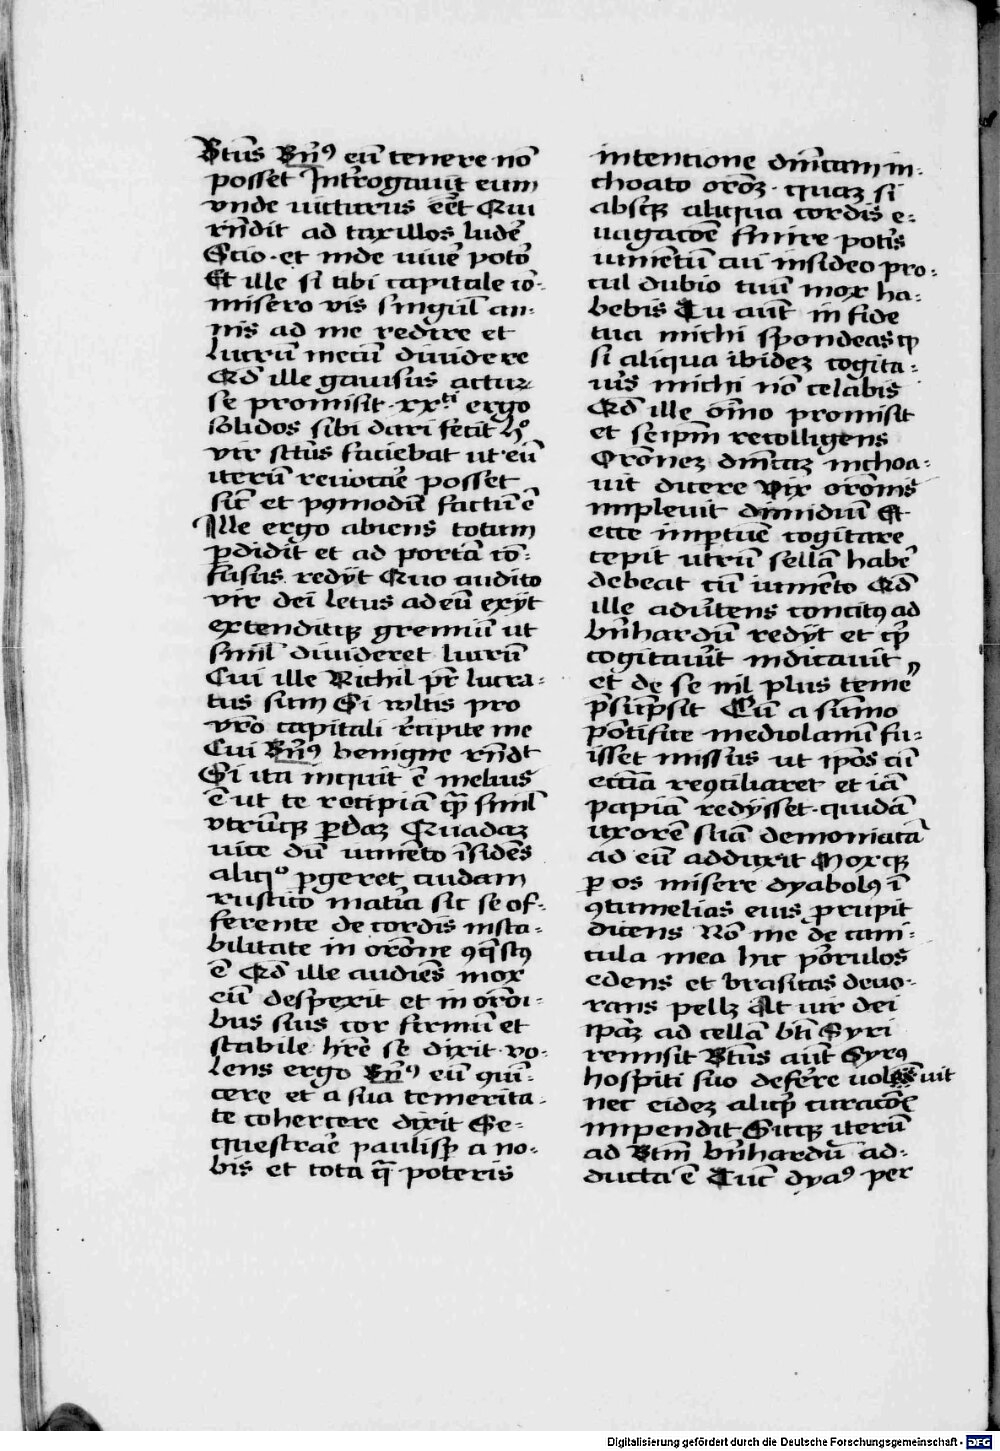 Btūs Bn̄ꝰ eū tenere nō
posset Int̄rogauit eum
vnde victurus eēt Qui
rn̄dit ad taxillos ludē
Scio et inde viuē potō
Et ille si tibi capitale cō-
misero vis singul̄ an-
nis ad me redire et
lucrū mecū diuidere
Qd̄ ille gauisus actuꝝ
se promisit xxᵗⁱ ergo
solidos sibi dari fecit h̊
vir sctūs faciebat ut eū
iterū reuocāe posset
sic̄ et pꝰmodū factū ē
Ille ergo abiens totum
ꝑdidit et ad portā cō-
fusus redijt Quo audito
vir dei letus ad eū exijt
extenditqꝫ gremiū ut
simil diuideret lucrū
Cui ille Nichil pr̄ lucra-
tus sum Si wltis pro
vr̄o capitali r̄cipite me
Cui Bn̄ꝰ benigne rn̄dt
Si ita inquit ē melius
ē ut te recipiā qꝫ siml̄
vtrūqꝫ ꝑdaꝫ Quadaꝫ
vice dū iumēto īsidēs
aliqͦ ꝑgeret cuidam
rustico mat̄ia sic se of-
ferente de cordis insta-
bilitate in or̄one ꝯq̄stꝰ
ē Qd̄ ille audiēs mox
eū despexit et in or̄oi-
bus suis cor firmū et
stabile hr̄e se dixit vo-
lens ergo Bn̄ꝰ eū qui-
cere et a sua temerita-
te cohercere dixit Se-
questrāe paulisꝑ a no-
bis et tota q̄ poteris
intencione dn̄icam in-
choato or̄oꝫ quaꝫ si
absqꝫ aliqua cordis e-
uagacōe finire potis
iumētū cui insideo pro-
cul dubio tuū mox ha-
bebis Tu aūt in fide
tua michi spondeas qꝫ
si aliqua ibideꝫ cogita-
uis michi nō celabis
Qd̄ ille oīno promisit
et seipm̄ recolligens
Or̄oneꝫ dn̄icaꝫ inchoa-
uit dicere Vix or̄onis
impleuit dimidiū Et
ecce imꝑtue cogitare
cepit utrū sellā habē
debeat cū iumēto Qd̄
ille adūtens concitꝰ ad
bn̄hardū redijt et qꝫ
cogitauit indicauit
et de se nil plus temē
p̄sūpsit Cū a sūmo
pōtifice mediolanū fu-
isset missus ut ipōs cū
ecc̄ia reꝯciliaret et iā
papiā redijsset quidā
uxorē suā demoniatā
ad eū adduxit Moxqꝫ
ꝑ os misere dyabolꝰ ī
ꝯtumelias euis prupit
dicens Nō me de cani-
cula mea hic porulos
edens et brasicas deuo-
rans pellꝫ At uir dei
ipaꝫ ad cellā bti Syri
remisit Btūs aūt Syrꝰ
hospiti suo defērre uoluit
nec eideꝫ aliqꝫ curacōeꝫ
impendit Sicqꝫ iterū
ad Btm̄ bn̄hardū ad-
ducta ē Tūc dyaꝰ per
Digitalisierung gefördert durch die Deutsche Forschungsgemeinschaft - DFG